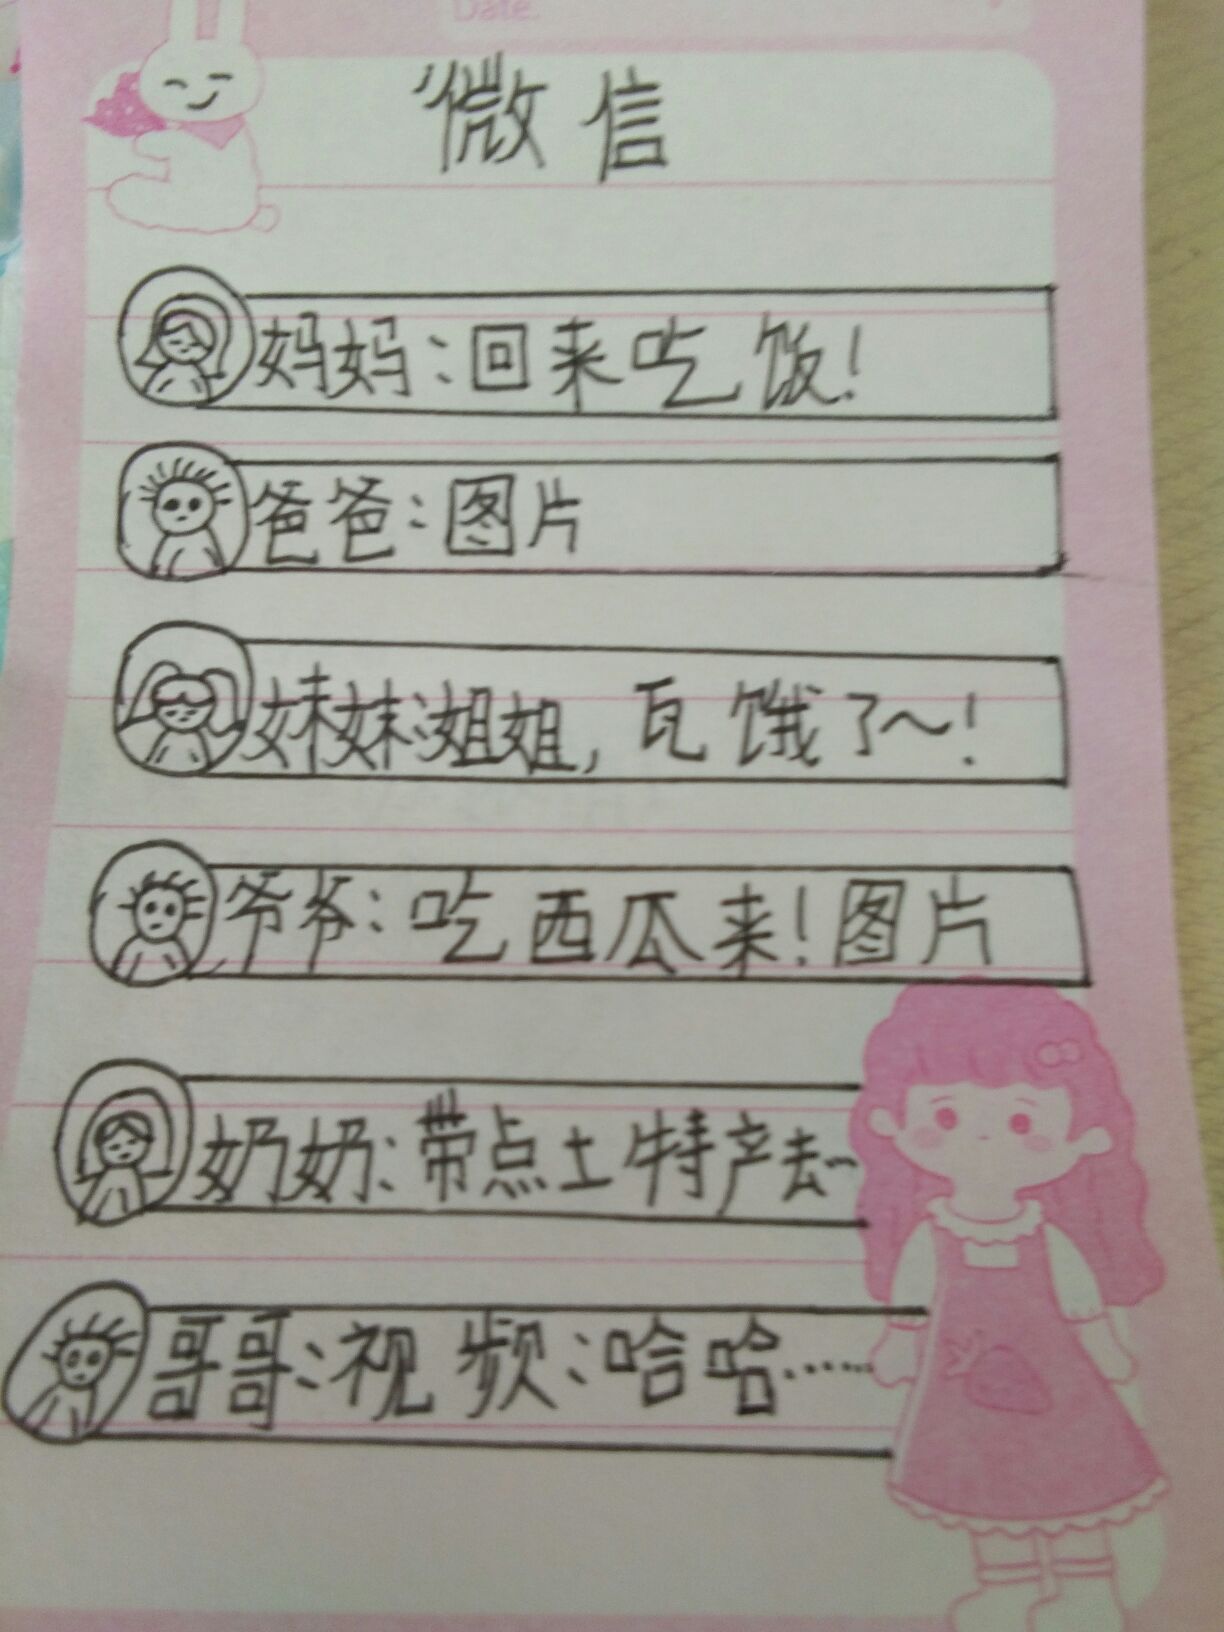 Date.
微信
妈妈:回来吃饭!
爸爸:图片
妹妹:姐姐,瓦饿了~!
爷爷:吃西瓜来!图片
奶奶:带点土特产去~
哥哥:视频:哈哈……